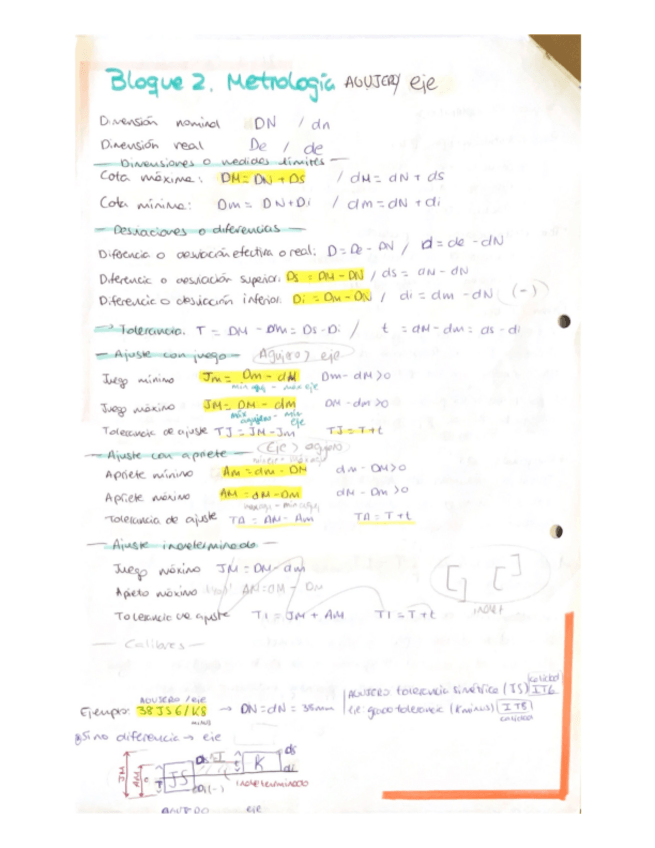 Bloque 2. Metrología AGUJERO/ eje
Dimensión nominal DN / dn
Dimensión real De / de
— Dimensiones o medidas límites —
Cota máxima: DM = DN + Ds / dM = dN + ds
Cota mínima: Dm = DN + Di / dm = dN + di
— Desviaciones o diferencias —
Diferencia o desviación efectiva o real: D = De - DN / d = de - dN
Diferencia o desviación superior: Ds = DM - DN / ds = dM - dN
Diferencia o desviación inferior: Di = Dm - DN / di = dm - dN (-)
→ Tolerancia. T = DM - Dm = Ds - Di / t = dM - dm = ds - di
— Ajuste con juego — Agujero > eje
Juego mínimo Jm = Dm - dM Dm - dM > 0
min aguj - máx eje
Juego máximo JM = DM - dm DM - dm > 0
máx agujero - min eje
Tolerancia de ajuste TJ = JM - Jm TJ = T + t
— Ajuste con apriete — (eje > agujero)
Apriete mínimo Am = dm - DM dm - DM > 0
Apriete máximo AM = dM - Dm dM - Dm > 0
Tolerancia de ajuste TA = AM - Am TA = T + t
— Ajuste indeterminado —
Juego máximo JM = DM - dm
Aprieto máximo AM = dM - Dm
Tolerancia de ajuste TI = JM + AM TI = T + t
indet
— Calibres —
AGUJERO / eje
Ejemplo: 38 JS6/K8 → DN = dN = 38mm
AGUJERO tolerancia simétrica (JS) IT6
calidad
eje grado tolerancia (K minus) IT8
calidad
minus
Si no diferencia → eje
JM AM JS K ds di
Di (-) indeterminado
eje